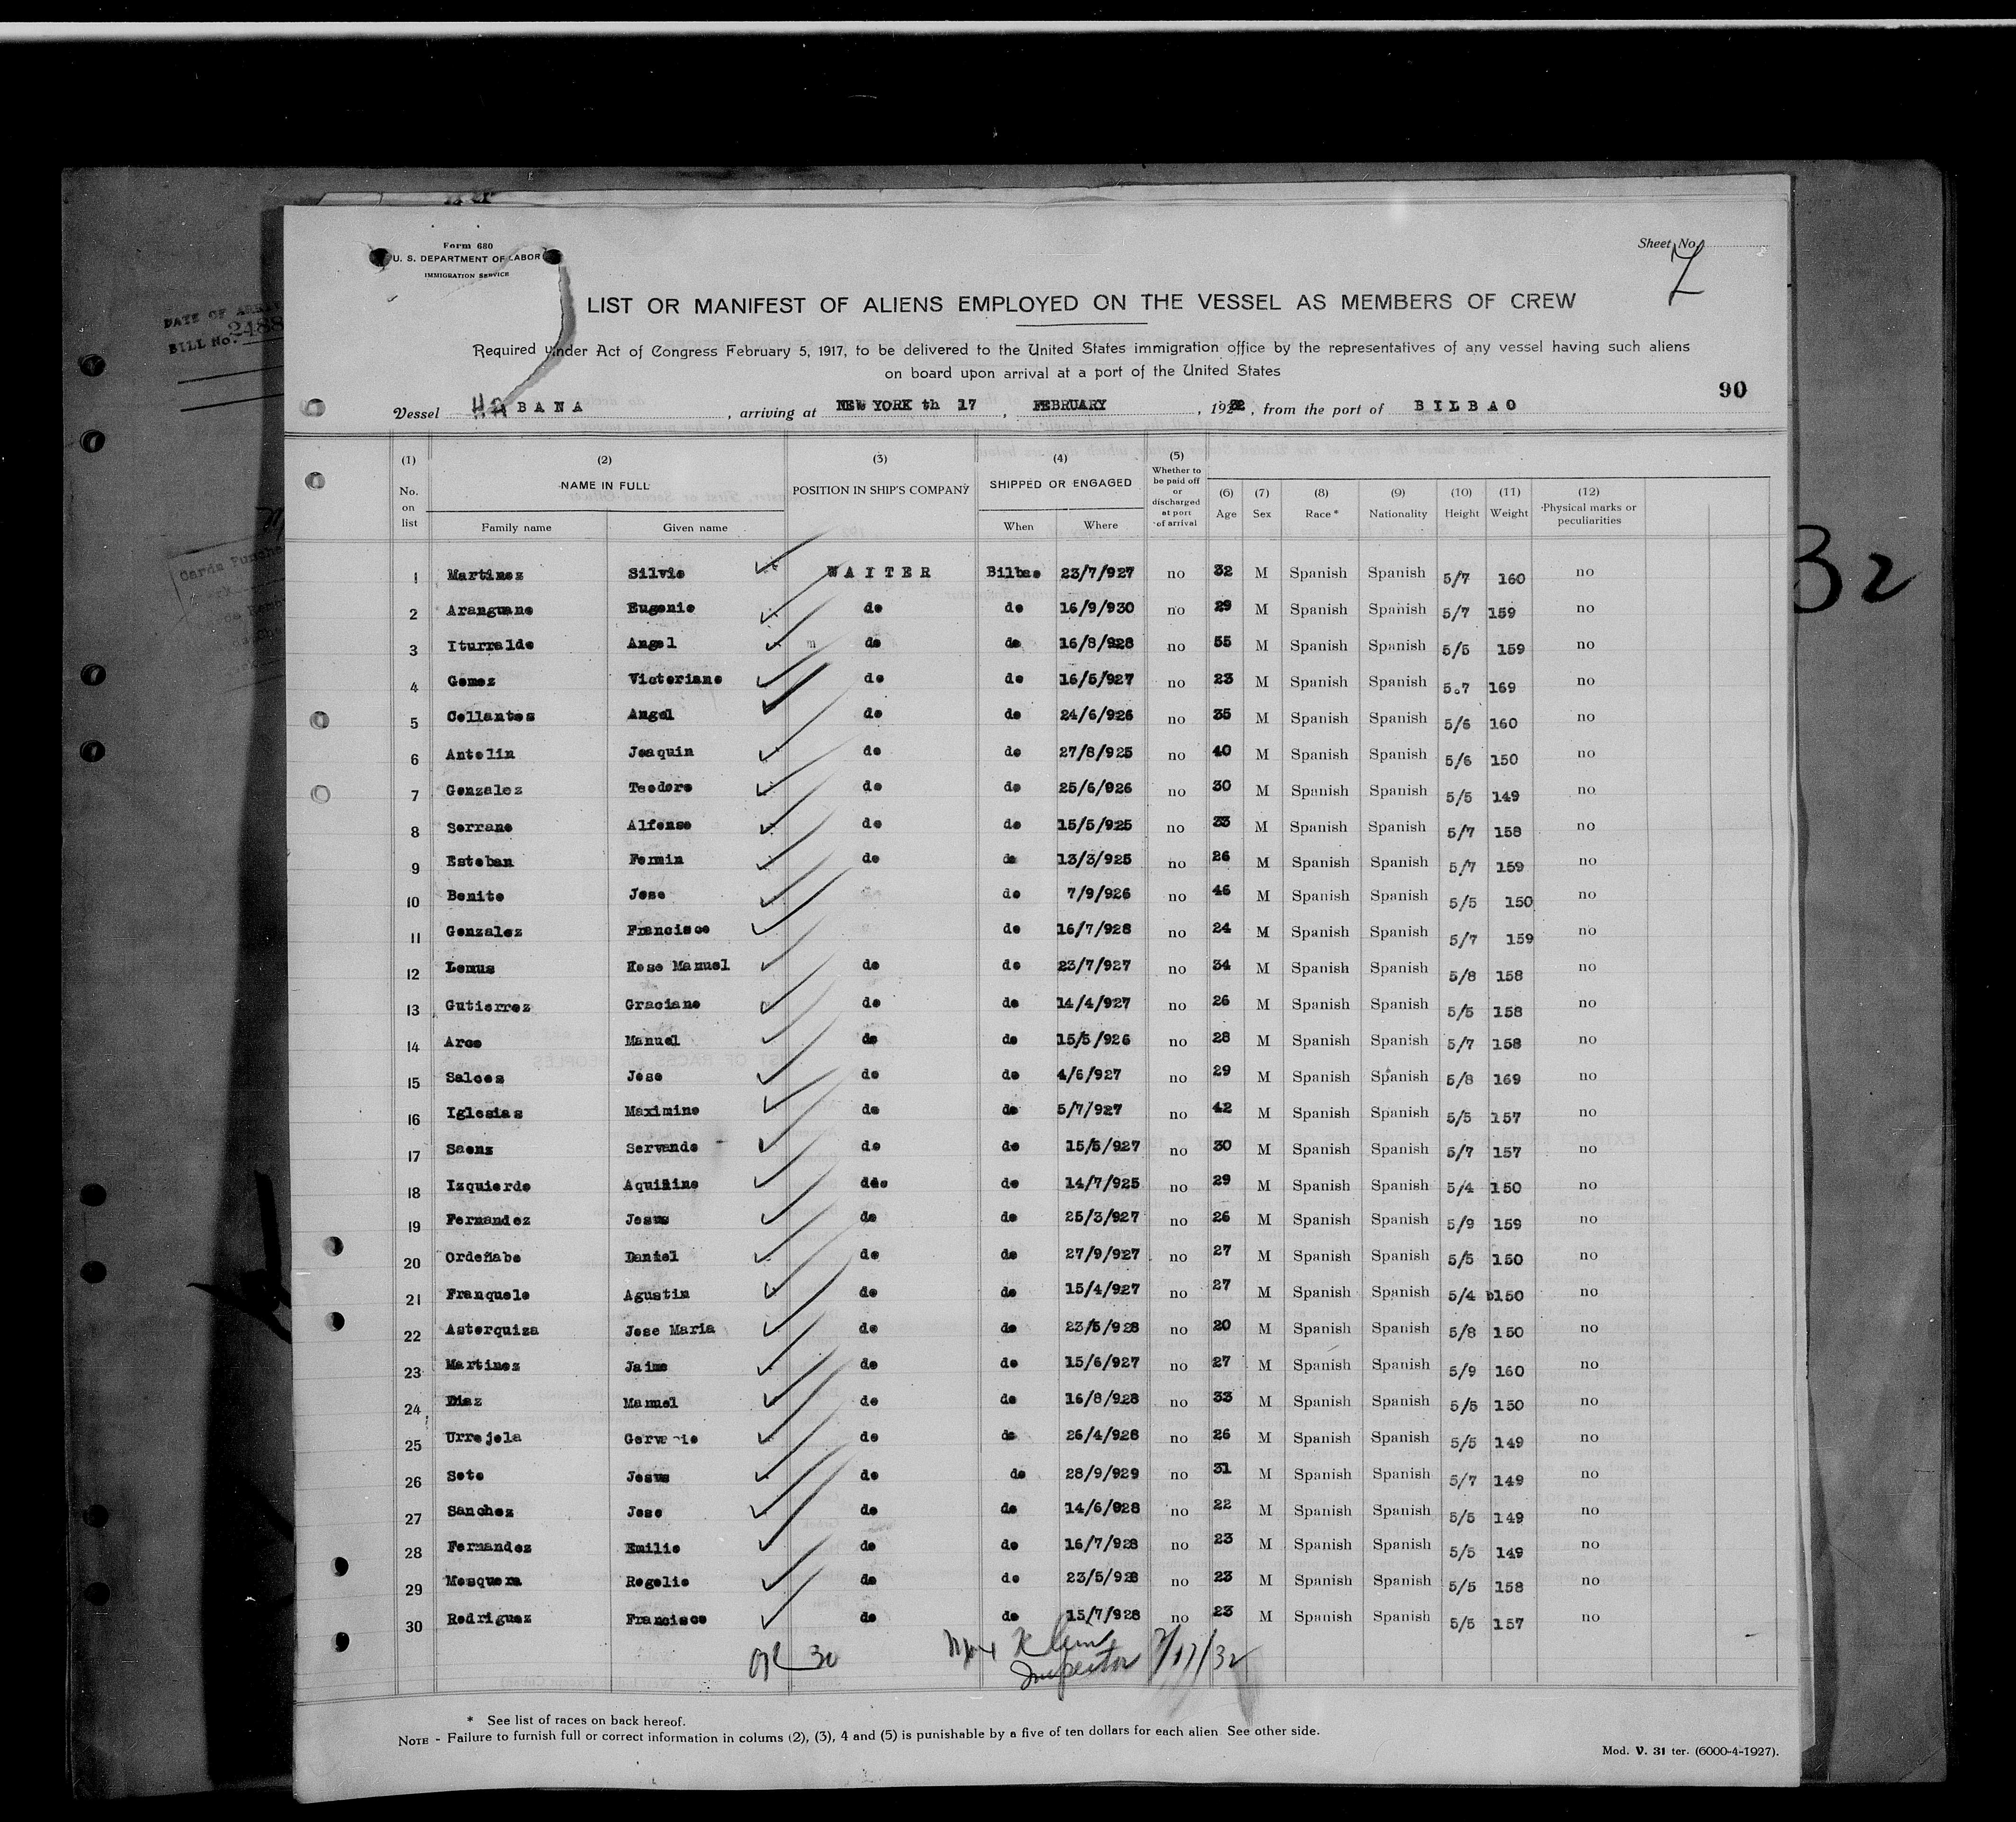 Form 680
U. S. DEPARTMENT OF LABOR
IMMIGRATION SERVICE
Sheet No. 7
LIST OR MANIFEST OF ALIENS EMPLOYED ON THE VESSEL AS MEMBERS OF CREW
Required under Act of Congress February 5, 1917, to be delivered to the United States immigration office by the representatives of any vessel having such aliens
on board upon arrival at a port of the United States
90
Vessel HABANA, arriving at NEW YORK th 17, FEBRUARY, 1932, from the port of BILBAO
DATE OF
BILL No. 2488
32
(1) No. on list (2) NAME IN FULL Family name Given name (3) POSITION IN SHIP'S COMPANY (4) SHIPPED OR ENGAGED When Where (5) Whether to be paid off or discharged at port of arrival (6) Age (7) Sex (8) Race * (9) Nationality (10) Height (11) Weight (12) Physical marks or peculiarities
1 Martinez Silvio WAITER Bilbao 23/7/927 no 32 M Spanish Spanish 5/7 160 no
2 Aranguano Eugenio do do 16/9/930 no 29 M Spanish Spanish 5/7 159 no
3 Iturralde Angel do do 16/8/928 no 55 M Spanish Spanish 5/5 159 no
4 Gomez Victoriano do do 16/5/927 no 23 M Spanish Spanish 5.7 169 no
5 Collantes Angel do do 24/6/926 no 35 M Spanish Spanish 5/6 160 no
6 Antolin Joaquin do do 27/8/925 no 40 M Spanish Spanish 5/6 150 no
7 Gonzalez Teodoro do do 25/6/926 no 30 M Spanish Spanish 5/5 149 no
8 Serrano Alfonso do do 15/5/925 no 33 M Spanish Spanish 5/7 158 no
9 Esteban Fermin do do 13/3/925 no 26 M Spanish Spanish 5/7 159 no
10 Benito Jose do 7/9/926 no 46 M Spanish Spanish 5/5 150 no
11 Gonzalez Francisco do 16/7/928 no 24 M Spanish Spanish 5/7 159 no
12 Lemus Hose Manuel do do 23/7/927 no 34 M Spanish Spanish 5/8 158 no
13 Gutierrez Graciano do do 14/4/927 no 26 M Spanish Spanish 5/5 158 no
14 Arce Manuel do do 15/5/926 no 28 M Spanish Spanish 5/7 158 no
15 Salces Jose do do 4/6/927 no 29 M Spanish Spanish 5/8 169 no
16 Iglesias Maximino do do 5/7/927 no 42 M Spanish Spanish 5/5 157 no
17 Saenz Servando do do 15/5/927 no 30 M Spanish Spanish 5/7 157 no
18 Izquierdo Aquilino do do 14/7/925 no 29 M Spanish Spanish 5/4 150 no
19 Fernandez Jesus do do 25/3/927 no 26 M Spanish Spanish 5/9 159 no
20 Ordeñabe Daniel do do 27/9/927 no 27 M Spanish Spanish 5/5 150 no
21 Franquelo Agustin do do 15/4/927 no 27 M Spanish Spanish 5/4 150 no
22 Astorquiza Jose Maria do do 23/5/928 no 20 M Spanish Spanish 5/8 150 no
23 Martinez Jaime do do 15/6/927 no 27 M Spanish Spanish 5/9 160 no
24 Diaz Manuel do do 16/8/928 no 33 M Spanish Spanish 5/5 150 no
25 Urrejola do do 26/4/928 no 26 M Spanish Spanish 5/5 149 no
26 Soto Jesus do do 28/9/929 no 31 M Spanish Spanish 5/7 149 no
27 Sanchez Jose do do 14/6/928 no 22 M Spanish Spanish 5/5 149 no
28 Fernandez Emilio do do 16/7/928 no 23 M Spanish Spanish 5/5 149 no
29 Mosquera Rogelio do do 23/5/928 no 23 M Spanish Spanish 5/5 158 no
30 Rodriguez Francisco do do 15/7/928 no 23 M Spanish Spanish 5/5 157 no
OK 30 Klein 2/17/32
Inspector
* See list of races on back hereof.
NOTE - Failure to furnish full or correct information in colums (2), (3), 4 and (5) is punishable by a five of ten dollars for each alien See other side.
Mod. V. 31 ter. (6000-4-1927).